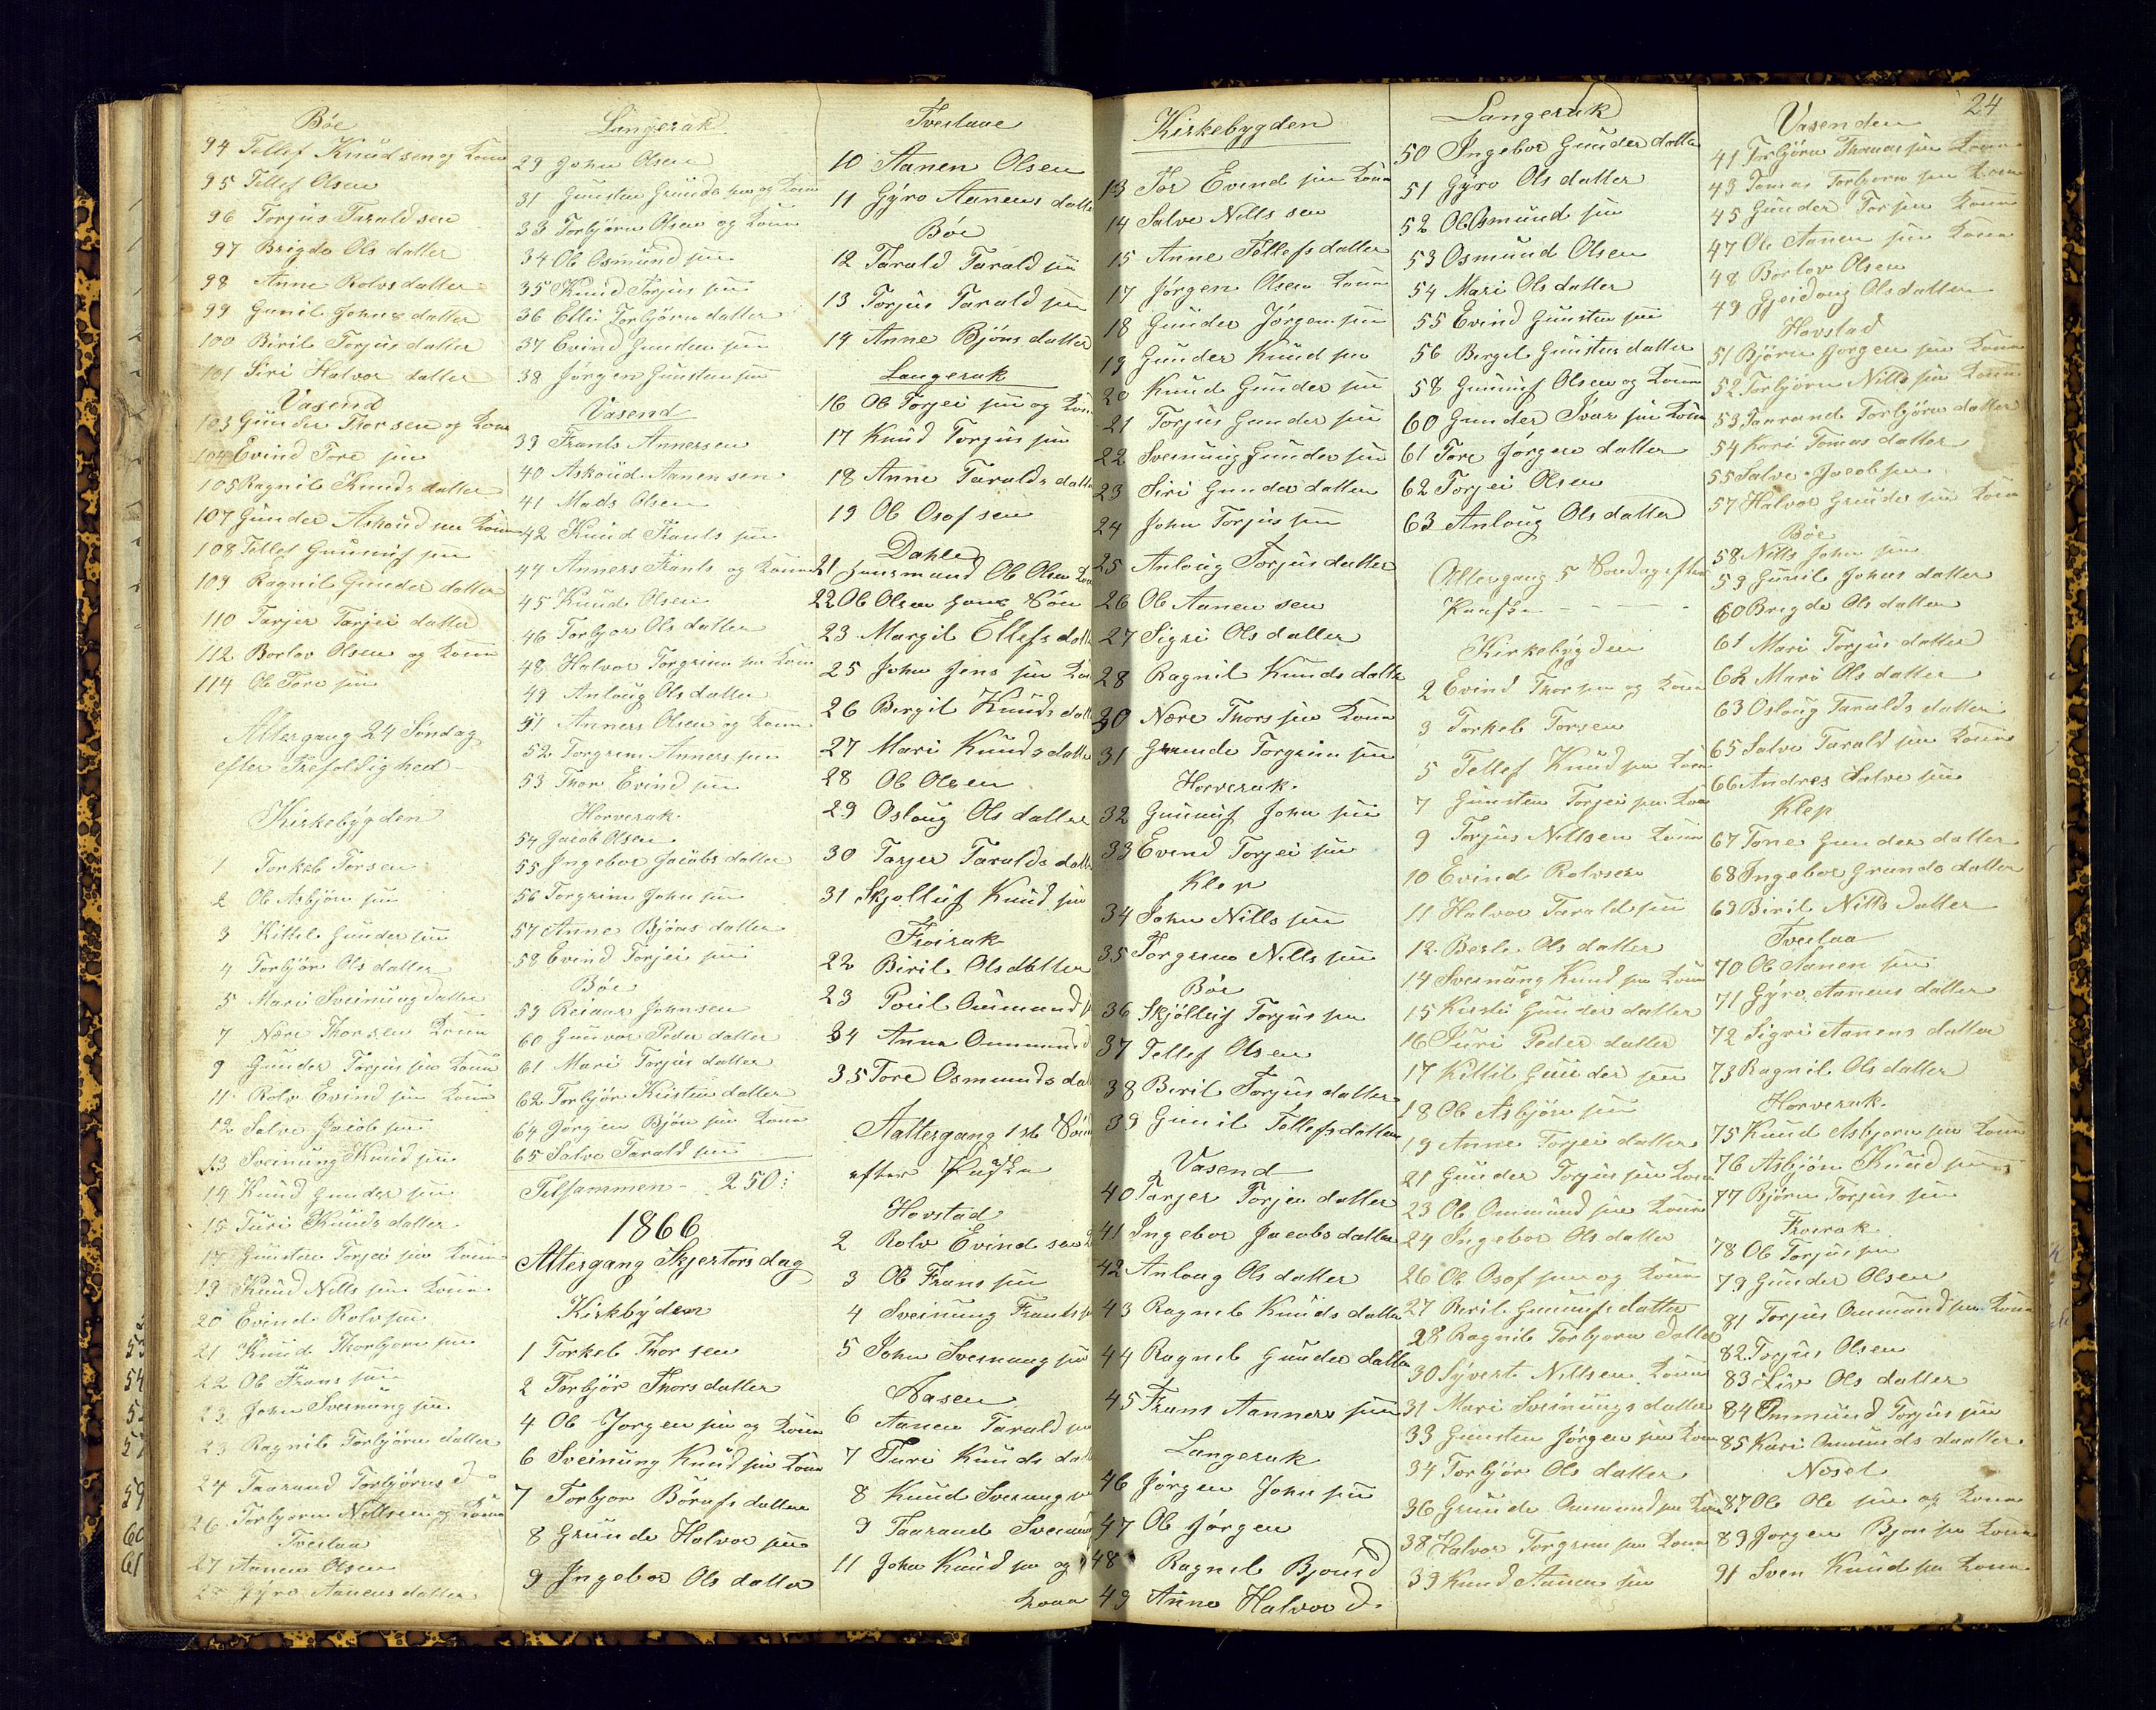 Bøe
94 Tellef Knudsen og Kone
95 Tellef Olsen
96 Torjus Taraldsen
97 Brigde Ols datter
98 Anne Rolvs datter
99 Gunil Johns datter
100 Biril Torjus datter
101 Siri Halvor datter
Vasend
103 Gunder Thorsen og Kone
104 Evind Tore sen
105 Ragnil Knuds datter
107 Gunder Askoud sen Kone
108 Tellef Gunnuf sen
109 Ragnil Gunder datter
110 Tarjer Tarjei datter
112 Borlov Olsen og Kone
114 Ol Tore sen
Altergang 24 Søndag
efter Trefoldighed
Kirkebygden
1 Torkel Torsen
2 Ol Asbjørn sen
3 Kittel Gunder sen
4 Torbjør Ols datter
5 Mari Sveinung datter
7 Nære Thorsen Kone
9 Gunder Torjus sen Kone
11 Rolv Evind sen Kone
12 Salve Jacob sen
13 Sveinung Knud sen
14 Knud Gunder sen
15 Turi Knuds datter
17 Gunsten Torjei sen Kone
19 Knud Nills sen Kone
20 Evind Rolv sen
21 Knud Thorbjorn sen
22 Ol Frans sen
23 John Sveinung sen
23 Ragnil Torbjørn datter
24 Taarand Torbjørns d
26 Torbjorn Nillsen og Kone
Tveitaa
27 Aanen Olsen
28 Gyro Aanens datter
Langerak
29 John Olsen
31 Gunsten Grunde sen og Kone
33 Torbjørn Olsen og Kone
34 Ol Osmund sen
35 Knud Torjus sen
36 Elli Torbjørn datter
37 Evind Gunsten sen
38 Jørgen Gunsten sen
Vasend
39 Frants Annersen
40 Askoud Aanensen
41 Mads Olsen
42 Knud Frants sen
44 Anners Frants og Kone
45 Knud Olsen
46 Torbjor Ols datter
48 Halvor Torgrim sen Kone
49 Anlaug Ols datter
51 Anners Olsen og Kone
52 Torgrim Anners sen
53 Thor Evind sen
Horverak
54 Jacob Olsen
55 Ingebor Jacobs datter
56 Torgrim John sen
57 Anne Bjøns datter
58 Evind Torjei sen
Bøe
59 Reiaar Johnsen
60 Gunvor Peder datter
61 Mari Torjus datter
62 Torbjør Kristen datter
64 Jørgen Bjøn sen Kone
65 Salve Tarald sen
Tilsammen - 250:
1866
Altergang Skjertorsdag
Kirkbyden
1 Torkel Thorsen
2 Torbjør Thors datter
4 Ol Jorgen sen og Kone
6 Sveinung Knud sen Kone
7 Torbjor Børufs datter
8 Grunde Halvor sen
9 Ingebor Ols datter
Tveitaae
10 Aanen Olsen
11 Gyro Aanens datter
Bøe
12 Tarald Tarald sen
13 Torjus Tarald sen
14 Anne Bjøns datter
Langerak
16 Ol Torjei sen og Kone
17 Knud Torgus sen
18 Anne Taralds datter
19 Ol Osofsen
Dahle
21 Ol Olsen
22 Ol Olsen hans Søn
23 Margil Ellefs datt
25 John Jens sen Ko
26 Bergil Knuds datt
27 Mari Knuds datte
28 Ol Olsen
29 Oslaug Ols datter
30 Tarjer Taralds datt
31 Skjolluf Knud sen
Froirak
22 Biril Ols datter
23 Poul Ommund s
34 Anna Ommund
35 Tore Osmunds da
Aaltergang 1st Søn
efter Paaske
Hovstad
2 Rolv Evind sen
3 Ol Frans sen
4 Sveinung Frants s
5 John Sveinung sen
Aasen
6 Aanen Tarald sen
7 Turi Knuds dat
8 Knud Sveinung s
9 Taarand Sveinun
11 John Knud sen og
Kone
Kirkebygden
13 Tor Evind sen Kone
14 Salve Nillssen
15 Anne Tellefs datter
17 Jørgen Olsen Kone
18 Gunder Jørgen sen
19 Gunder Knud sen
20 Knud Gunder sen
21 Torjus Gunder sen
22 Sveinung Gunder sen
23 Siri Gunder datter
24 John Torjus sen
25 Anlaug Torjus datter
26 Ol Aanensen
27 Sigri Ols datter
28 Ragnil Knuds datter
30 Nære Thors sen Kone
31 Grunde Torgrim sen
Horverak
32 Gunnuf John sen
33 Evend Torjei sen
Klep
34 John Nills sen
35 Torgrim Nills sen
Bøe
36 Skjølluf Torjus sen
37 Tellef Olsen
38 Beril Torjus datter
39 Gunil Tellefs datter
Vasend
40 Tarjer Torjei datter
41 Ingebor Jacobs datter
42 Anlaug Ols datter
43 Ragnil Knuds datter
44 Ragnil Gunder datter
45 Frans Aanners sen
Langerak
46 Jørgen John sen
47 Ol Jørgen
48 Ragnil Bjons d
49 Anne Halvor d.
Langerak
50 Ingebor Gunder datter
51 Gyro Ols datter
52 Ol Osmund sen
53 Osmund Olsen
54 Mari Ols datter
55 Evind Gunsten sen
56 Bergil Gunstens datter
58 Gunnuf Olsen og Kone
60 Gunder Ivar sen Kone
61 Tore Jørgen datter
62 Torjei Olsen
63 Anlaug Ols datter
Altergang 5 Søndag efter
Paaske - - - -
Kirkebygden
2 Evind Thor sen og Kone
3 Torkel Torsen
5 Tellef Knud sen Kone
7 Gunsten Torjei sen Kone
9 Torjus Nillsen Kone
10 Evind Rolvsen
11 Halvor Tarald sen
12 Berle Ols datter
14 Sveinung Knud sen Kone
15 Kirsti Gunder datter
16 Turi Peder datter
17 Kittil Gunder sen
18 Ol Asbjørn sen
19 Anne Torjei datter
21 Gunder Torjus sen Kone
23 Ol Ommund sen Kone
24 Ingebor Ols datter
26 Ol Osof sen og Kone
27 Beril Gunnufs datter
28 Ragnil Torbjorn datter
30 Syvert Nillsen Kone
31 Mari Sveinungs datter
33 Gunsten Jørgen sen Kone
34 Torbjør Ols datter
36 Grunde Ommund sen Kone
38 Halvor Torgrim sen Kone
39 Knud Aanen sen
24
Vasenden
41 Torbjørn Thomas sen Kone
43 Tomas Torbjorn sen Kone
45 Gunder Tor sen Kone
47 Ol Aanen sen Kone
48 Borlov Olsen
49 Gjeidaug Ols datter
Hovstad
51 Bjørn Jorgen sen Kone
52 Torbjørn Nills sen Kone
53 Taarand Torbjørn datter
54 Kari Tomas datter
55 Salve Jacob sen
57 Halvor Grunde sen Kone
Bøe
58 Nills John sen
59 Gunil Johns datter
60 Brigde Ols datter
61 Mari Torjus datter
62 Mari Ols datter
63 Oslaug Taralds datter
65 Salve Tarald sen Kone
66 Andres Salve sen
Klep
67 Tone Gunder datter
68 Ingebor Grunds datter
69 Biril Nills datter
Tveitaa
70 Ol Aanen sen
71 Gyro Aanens datter
72 Sigri Aanens datter
73 Ragnil Ols datter
Horverak
75 Knud Asbjorn sen Kone
76 Asbjørn Knud sen
77 Bjørn Torjus sen
Froirak
78 Ol Torjus sen
79 Gunder Olsen
81 Torjus Ommund sen Kone
82 Torjus Olsen
83 Liv Ols datter
84 Ommund Torjus sen
85 Kari Ommunds datter
Nosel
87 Ol Ole sen og Kone
89 Jorgen Bjon sen Kone
91 Sven Knud sen Kone